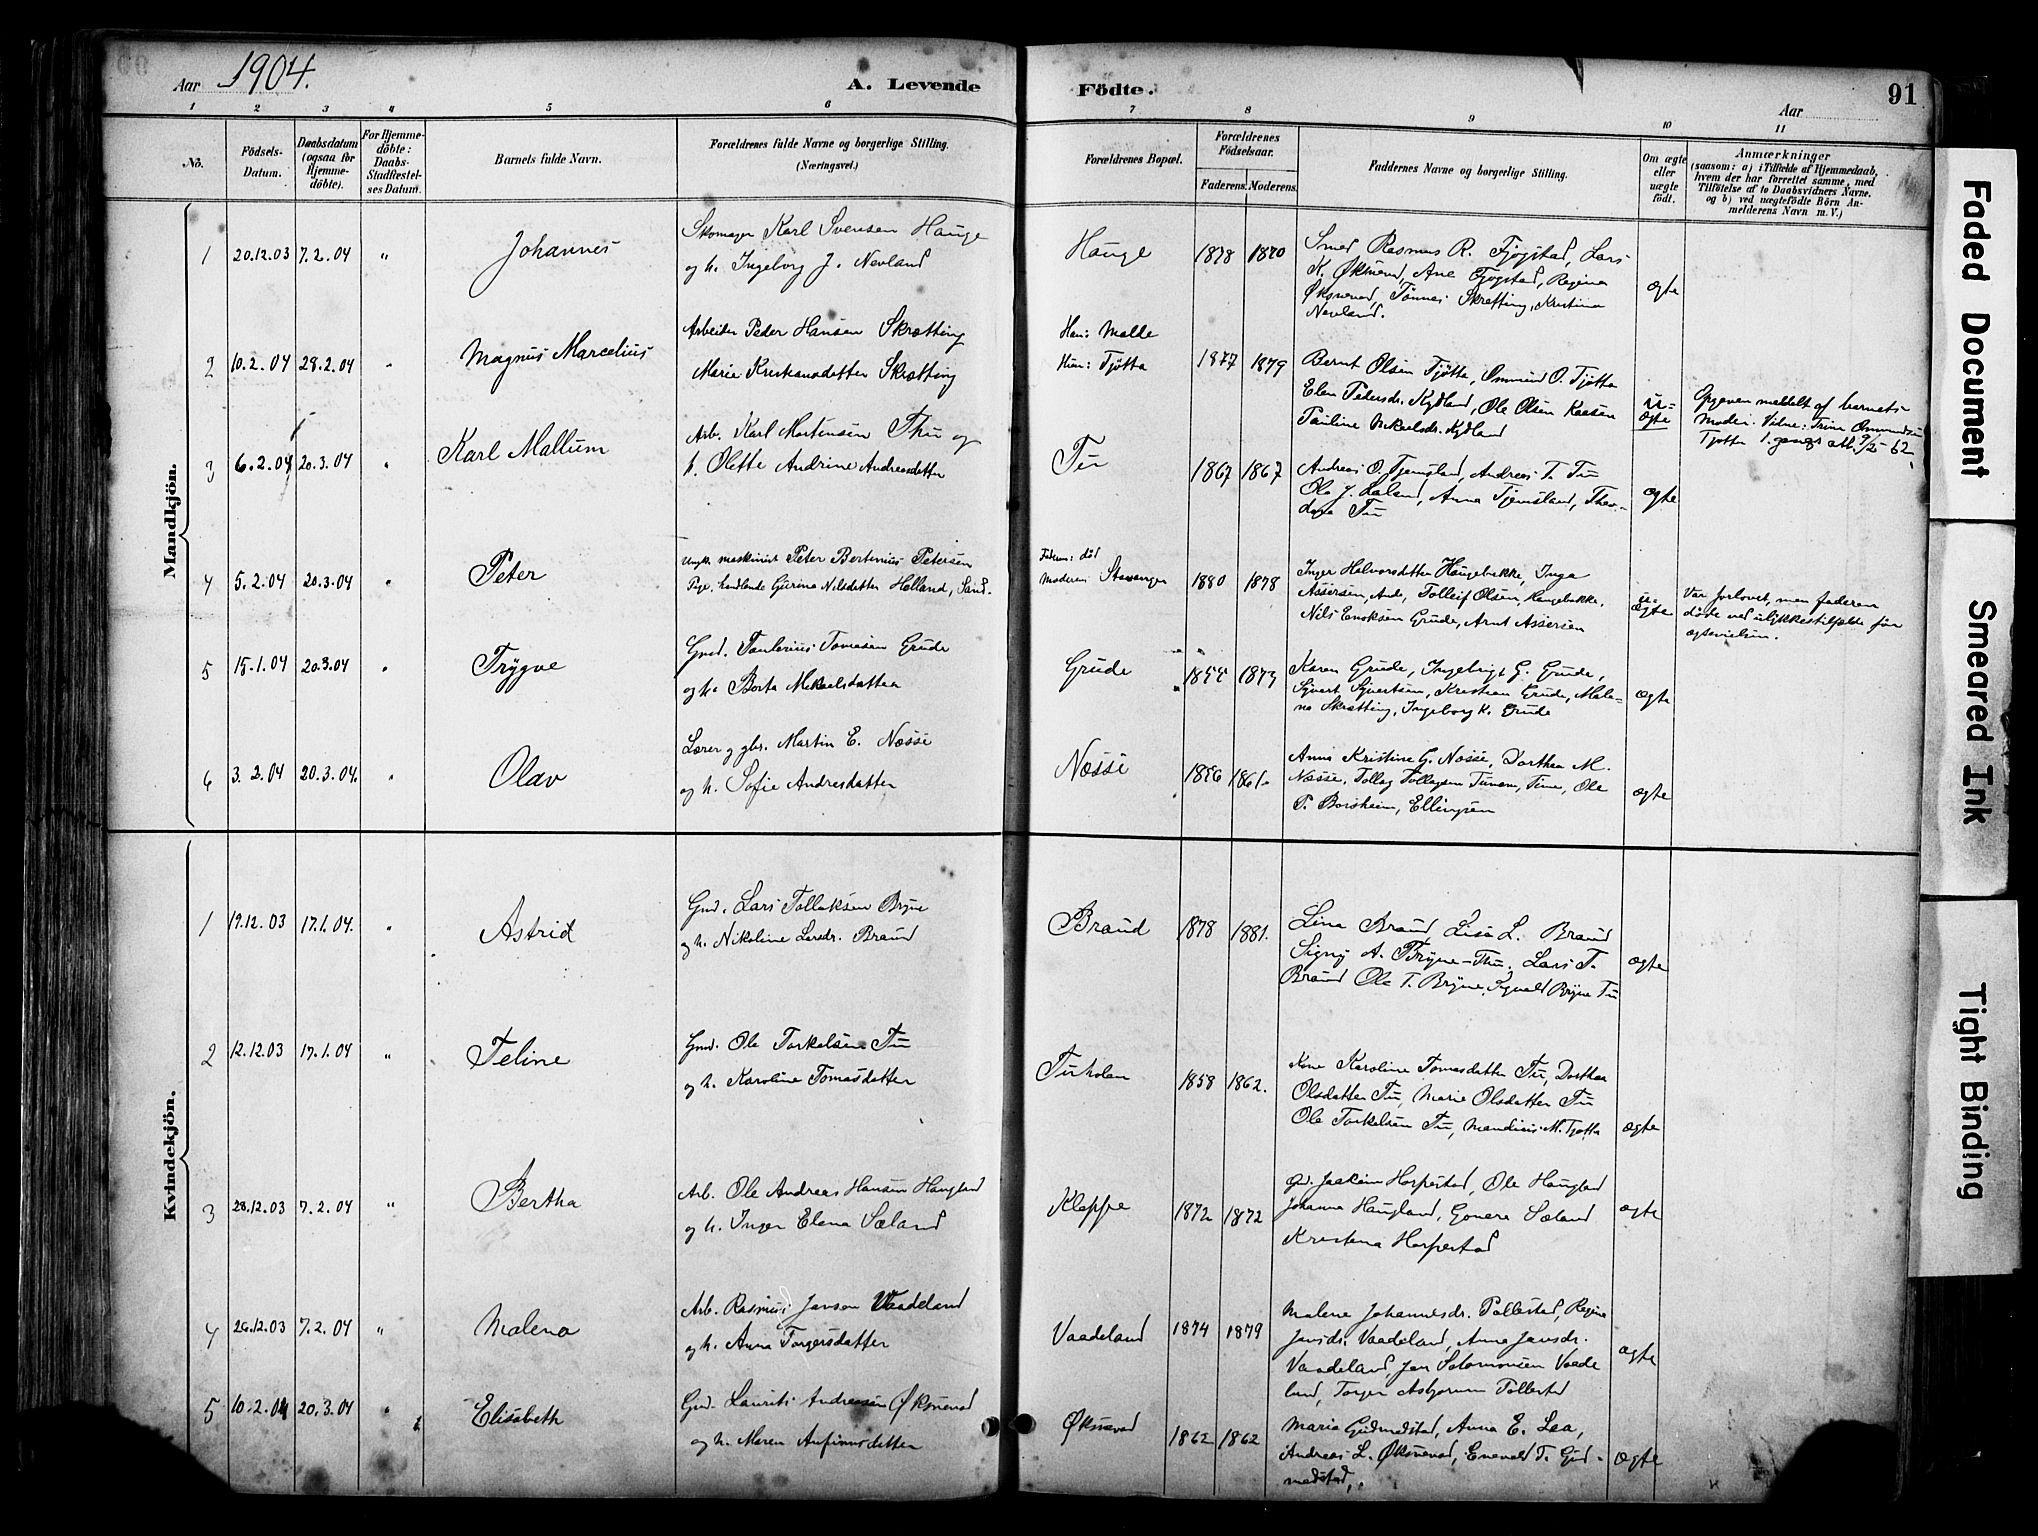 Aar 1904.
A. Levende Födte.
Aar
91
1 2 3 4 5 6 7 8 9 10 11
No.
Födsels-Datum.
Daabsdatum (ogsaa for Hjemme-döbte).
For Hjemme-döbte: Daabs-Stadfæstel-ses Datum.
Barnets fulde Navn.
Forældrenes fulde Navne og borgerlige Stilling. (Næringsvei.)
Forældrenes Bopæl.
Forældrenes Födselsaar.
Faderens. Moderens.
Faddernes Navne og borgerlige Stilling.
Om ægte eller uægte födt.
Anmærkninger
(saasom: a) i Tilfælde af Hjemmedaab, hvem der har forrettet samme, med Tilföielse af to Daabsvidners Navne. og b) ved uægtefödte Börn An-melderens Navn m. V.)
Mandkjön.
1 20.12.03 7.2.04 " Johannes
Skomager Karl Svensen Hauge
og h. Ingeborg J. Nevland
Hauge 1878 1870
Smed Rasmus R. Fjøgstad, Lars
K. Øksnevad, Ane Fjøgstad, Regina
Øksnevad, Tønnes Skretting, Kristina
Nevland.
ægte
2 10.2.04 28.2.04 " Magnus Marcelius
Arbeider Peder Hansen Skrætting
Marie Kristiansdatter Skrætting
Han: Malle
Hun: Tjøtta
1877 1879
Bernt Olsen Tjøtta, Ommund O. Tjøtta
Elen Pedersdr. Kydland, Ole Olsen
Pauline Mikaelsdr. Kydland
u=ægte
Opgaven meldt af barnets
Moder. Vidne: Trine Ommundsen
Tjøtta
3 6.2.04 20.3.04 " Karl Mallum
Arb. Karl Mortensen Thu og
h. Olette Andrine Andreasdatter
Tu 1867 1867
Andreas O. Tjemsland, Andreas T. Tu
Ole J. Laland, Anna Tjemsland, Theo-
dora Tu
ægte
4 5.2.04 20.3.04 " Peter
Ungk. maskinist Peter Bertinius Petersen
Pige, handlende Gurina Nilsdatter Helland, Sand.
Faderen: død
Moderen Stavanger
1880 1878
Inger Halvorsdatter Haugebakke, Inga
Assersen, Aude, Tolleif Olsen, Haugebakke,
Nils Enoksen Grude, Arnt Assersen
u=ægte
Var forlovet, men faderen
døde ved ulykkestilfælde før
ægtevielsen.
5 15.1.04 20.3.04 " Trygve
Gmd. Paulinius Tomasen Grude
og h. Berta Mikaelsdatter
Grude 1855 1873
Karen Grude, Ingebrigt G. Grude,
Sivert Sivertsen, Kristian Grude, Male-
na Skrætting, Ingeborg K. Grude
ægte
6 3.2.04 20.3.04. " Olav
Lærer og gbr. Martin E. Næsse
og h. Sofie Andresdatter
Næsse 1856 1861.
Anna Kristine G. Næsse, Dorthea M.
Næsse, Tollag Tollagsen Tunem, Time, Ole
P. Borsheim, Ellingsen
ægte
Kvindekjön.
1 19.12.03 17.1.04. " Astrid
Gmd. Lars Tollaksen Bryne
og h. Nikoline Larsdr. Braud
Braud 1878 1881.
Lina Braud, Lisa L. Braud
Signy A. Bryne-Thu, Lars T.
Braud Ole T. Bryne, Sigvald Bryne Tu
ægte
2 12.12.03 17.1.04 " Feline
Gmd. Ole Torkelsen Tu
og h. Karoline Tomasdatter
Tuholen 1858 1862.
Kone Karoline Tomasdatter Tu, Dorthea
Olsdatter Tu, Marie Olsdatter Tu
Ole Torkelsen Tu, Mandius M. Tjøtta
ægte
3 28.12.03 7.2.04 " Bertha
Arb. Ole Andreas Hansen Haugland
og h. Inger Elena Sæland
Kleppe 1872 1872
Gd. Joakim Horpestad, Ole Haugland
Johanna Haugland, Gonera Sæland
Kristena Horpestad
ægte
4 26.12.03 7.2.04 " Malena
Arb. Rasmus Jansen Vaadeland
og h. Anna Torgersdatter
Vaadeland 1874 1879
Malene Johannesdr. Pollestad, Regine
Jansdr. Vaadeland, Anna Jansdr.
Vaadeland, Jan Salomonsen Vaade
land, Torger Asbjornsen Pollestad
ægte
5 10.2.04 20.3.04 " Elisabeth
Gmd. Laurits Andreassen Øksnevad
og h. Maren Anfinnsdatter
Øksnevad 1862 1862
Maria Gudmestad, Anna E. Lea,
Andreas L. Øksnevad, Enevald T. Gud-
mestad,
ægte
Faded Document
Smeared Ink
Tight Binding